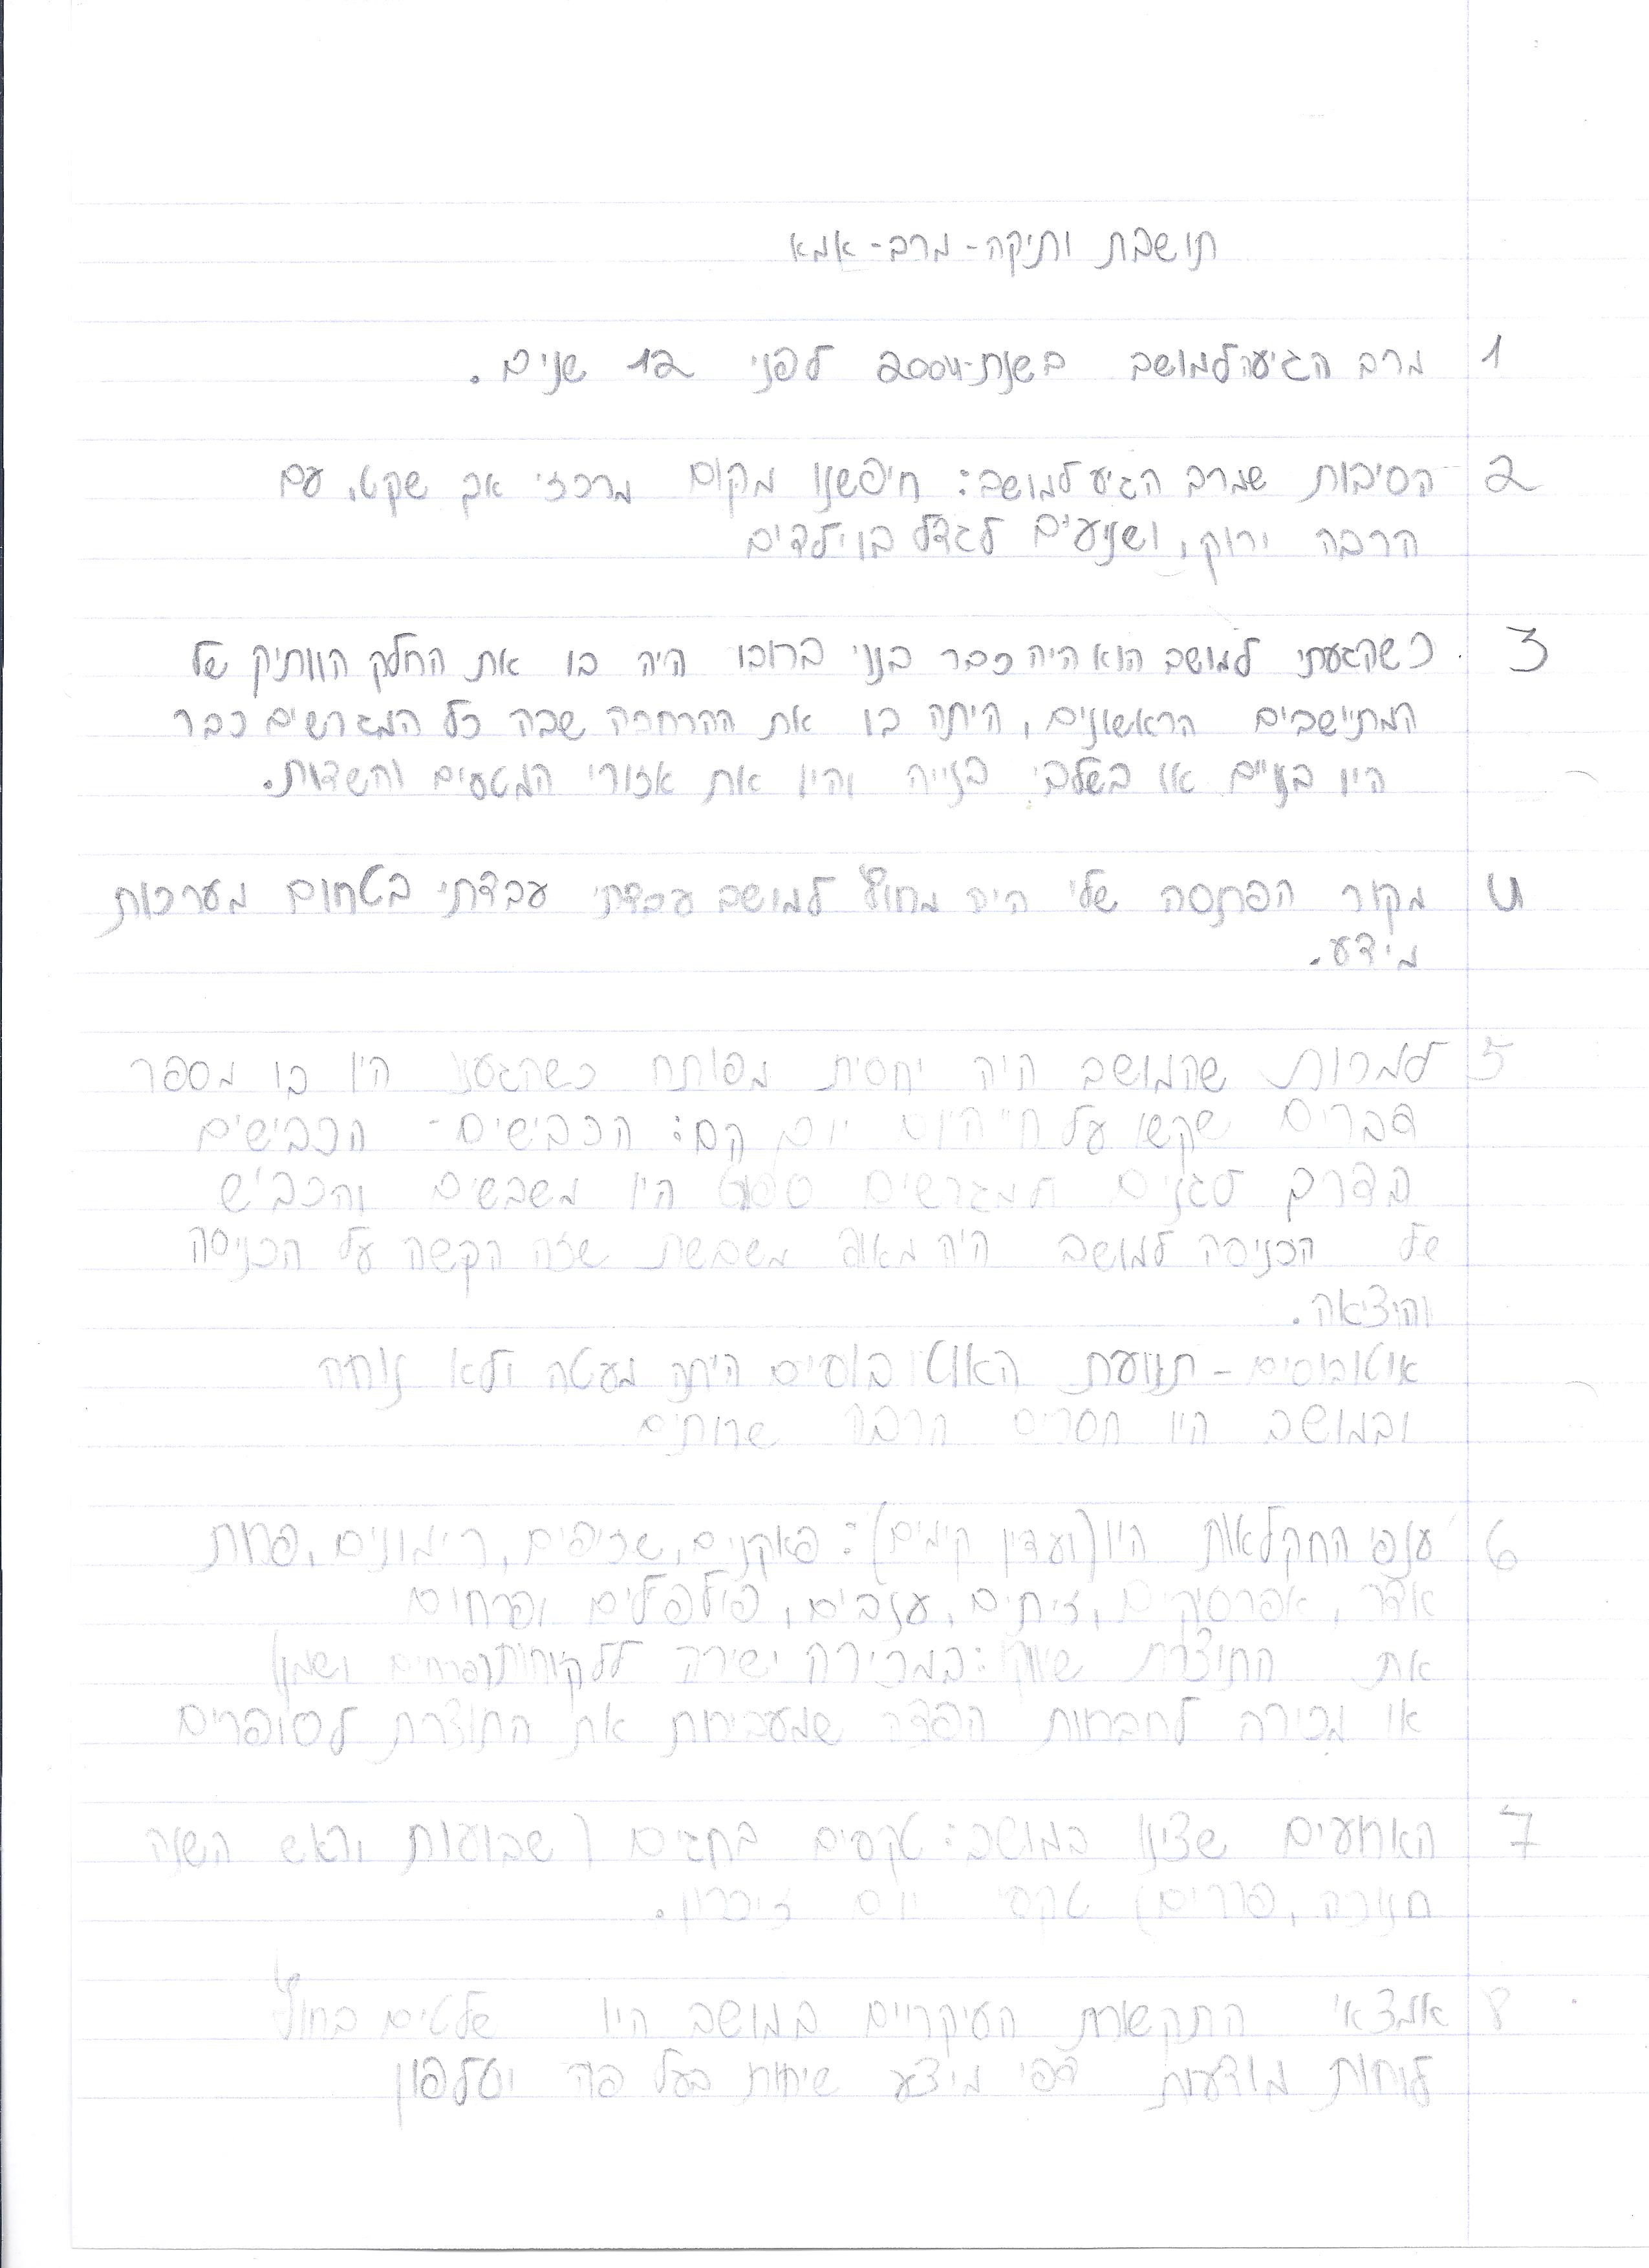 תושבת ותיקה - מרב - אמא
1 מרב הגיעה למושב בשנת-2004 לפני 12 שנים.
2 הסיבות שמרב הגיע למושב: חיפשנו מקום מרכזי אך שקט, עם
הרבה ירוק, ושנעים לגדל בו ילדים
3 כשהגעתי למושב הוא היה כבר בנוי ברובו היה בו את החלק הוותיק של
המתיישבים הראשונים, היתה בו את ההרחבה שבה כל המגרשים כבר
היו בנויים או בשלבי בנייה והיו את אזורי המטעים והשדות.
4 מקור הפרנסה שלי היה מחוץ למושב עבדתי עבדתי בתחום מערכות
מידע.
5 למרות שהמושב היה יחסית מפותח כשהגענו היו בו מספר
דברים שקשו על חיי היום יום הם: הכבישים - הכבישים
בדרך לגנים היו משבשים והכביש
של הכניסה למושב היה מאוד משבשת שזה הקשה על הכניסה
והיציאה.
אוטובוסים - תנועת האוטובוסים היתה מעטה ולא נוחה
ובמושב היו חסרים הרבה שרותים
6 ענפי החקלאות היו (ועדין קימים): פאקנים, שזיפים, רימונים, פרות
אדר, אפרסקים, זיתים, ענבים, פילפלים ופרחים
את התוצרת שיווקו: במכירה ישירה ללקוחות (פרחים ושמן)
או מכירה לחברות הפצה שמעבירות את התוצרת לסופרים
7 הארועים שצינו במושב: טקסים בחגים (שבועות וראש השנה
חנוכה, פורים) טקסי יום זיכרון.
8 אמצאי התקשורת העיקריים במושב היו שלטים בחוץ
לוחות מודעות דפי מידע שיחות בעל פה וטלפון